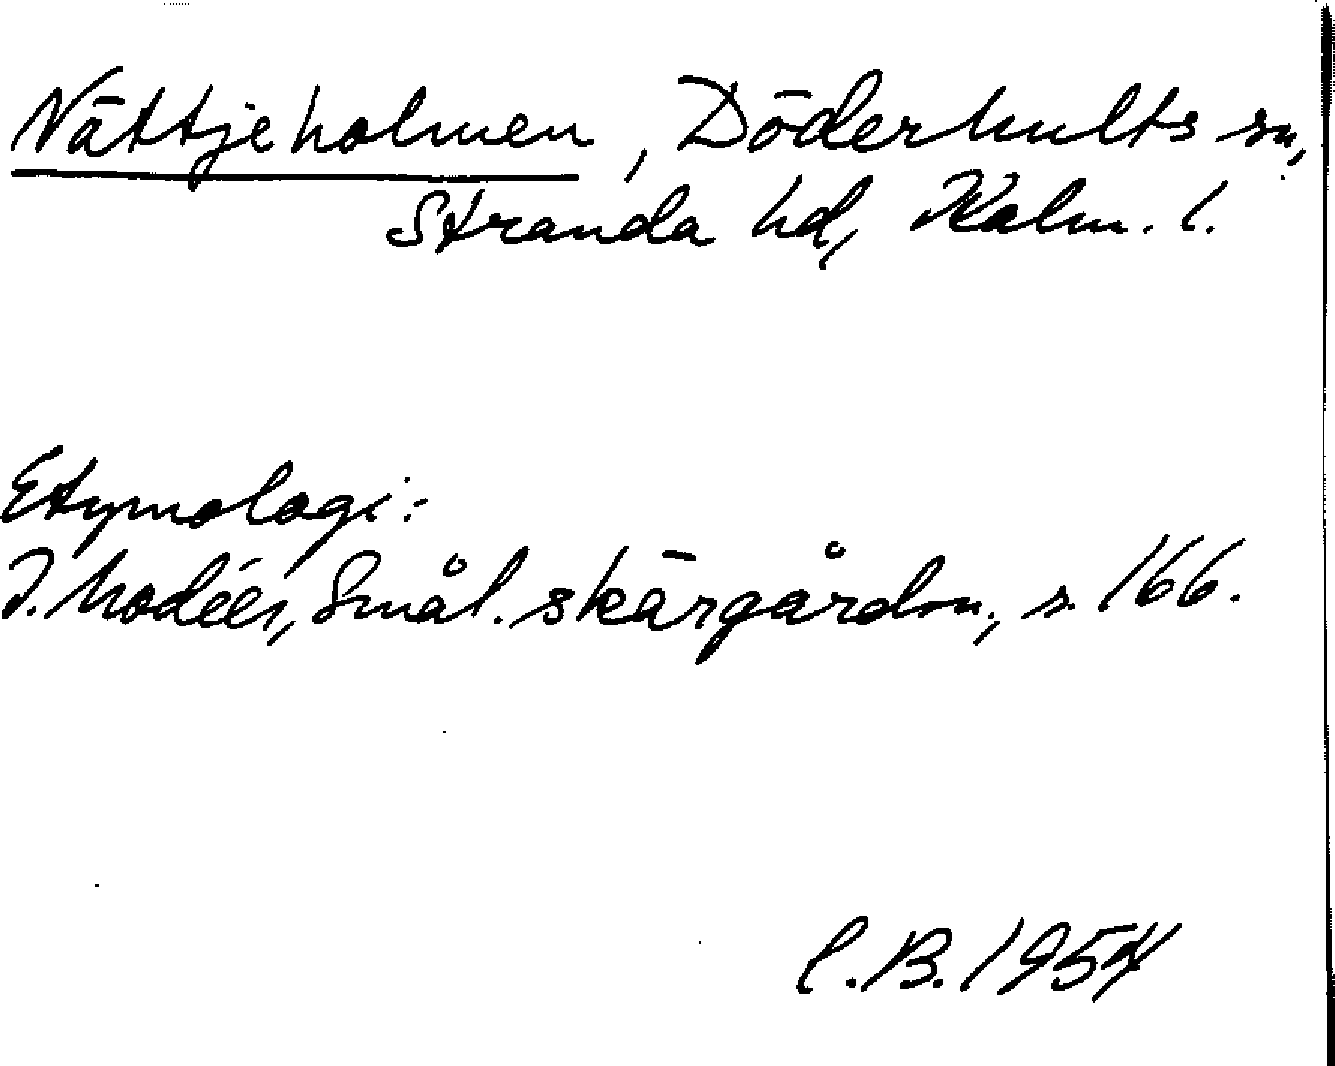 Nättjeholmen, Döderhults sn,
Stranda hd, Kalm. l.
Etymologi:
I. Modéer, Smål. skärgården, s. 166.
C.B. 1954